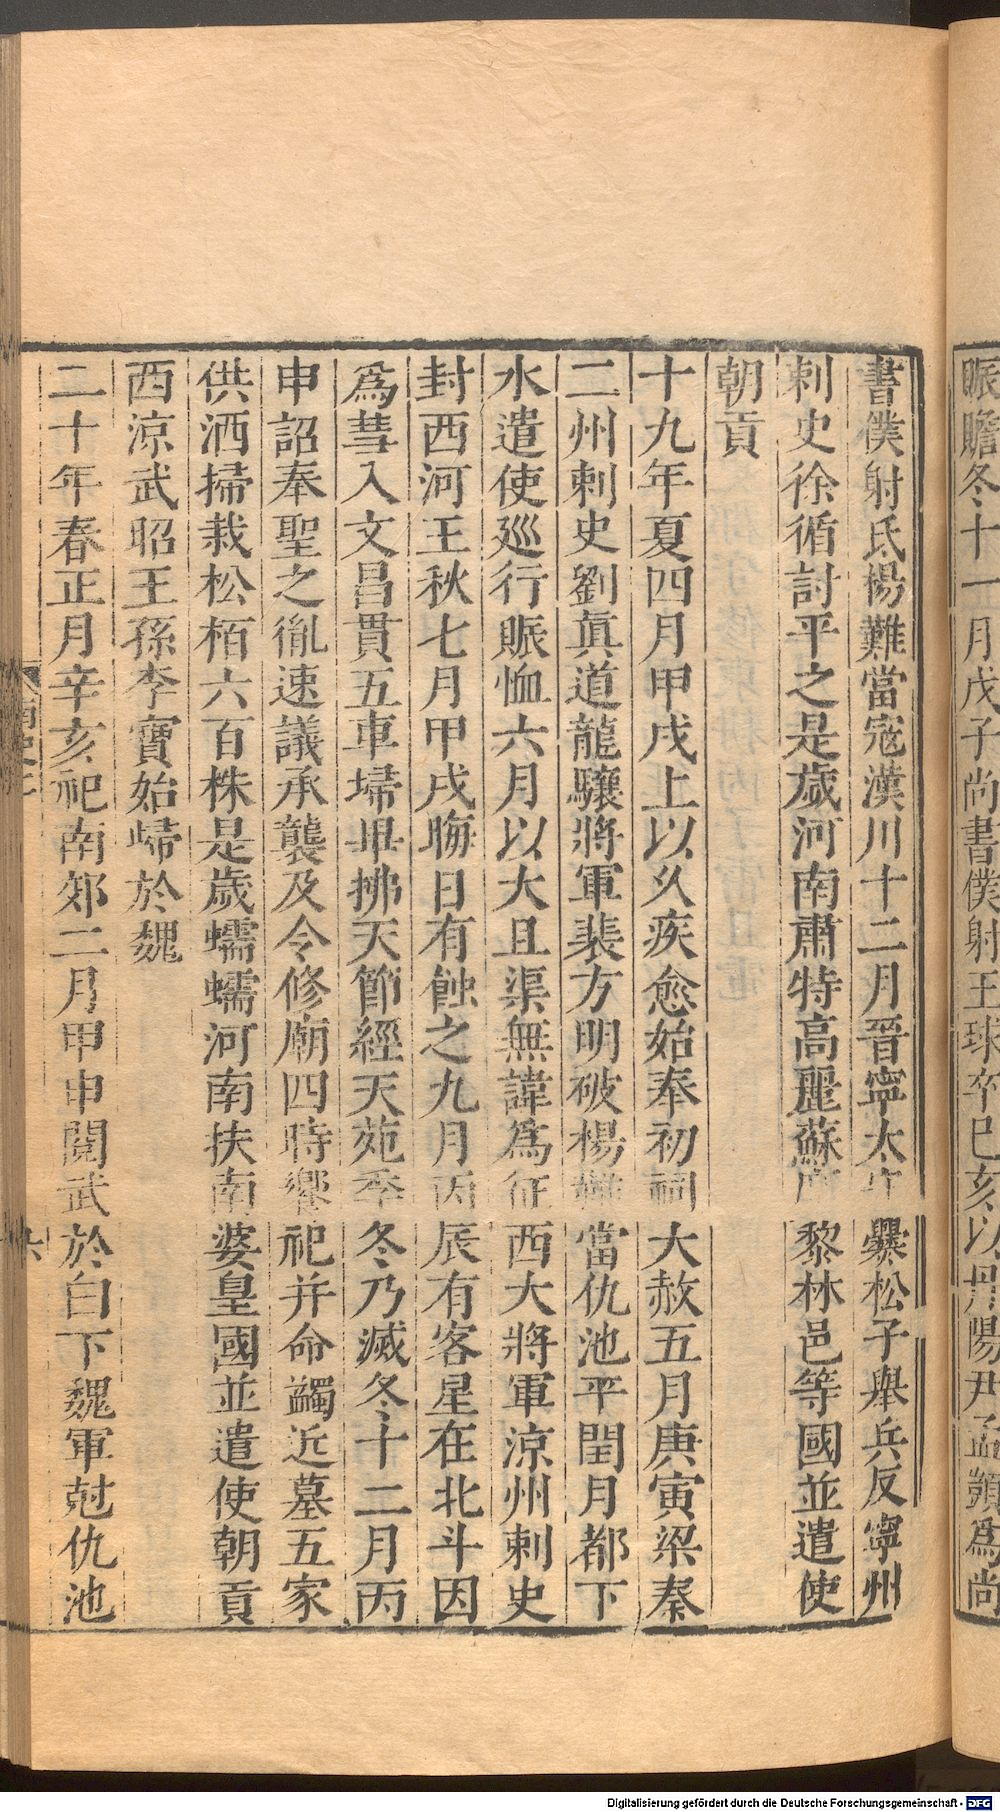 賑贍冬十一月戊子尚書僕射王球卒己亥以丹陽尹孟顗爲尚
書僕射氐楊難當寇漢川十二月晉寧太守爨松子舉兵反寧州
刺史徐循討平之是歲河南肅特高麗蘇黎林邑等國並遣使
朝貢
十九年夏四月甲戌上以久疾愈始奉初祠大赦五月庚寅梁秦
二州刺史劉眞道龍驤將軍裴方明破楊難當仇池平閏月都下
水遣使巡行賑恤六月以大且渠無諱爲征西大將軍涼州刺史
封西河王秋七月甲戌晦日有蝕之九月丙辰有客星在北斗因
爲彗入文昌貫五車埽畢拂天節經天苑季冬乃滅冬十二月丙
申詔奉聖之胤速議承襲及令修廟四時饗祀并命蠲近墓五家
供洒掃栽松栢六百株是歲蠕蠕河南扶南婆皇國並遣使朝貢
西涼武昭王孫李寶始歸於魏
二十年春正月辛亥祀南郊二月甲申閱武於白下魏軍尅仇池
六
Digitalisierung gefördert durch die Deutsche Forschungsgemeinschaft - DFG